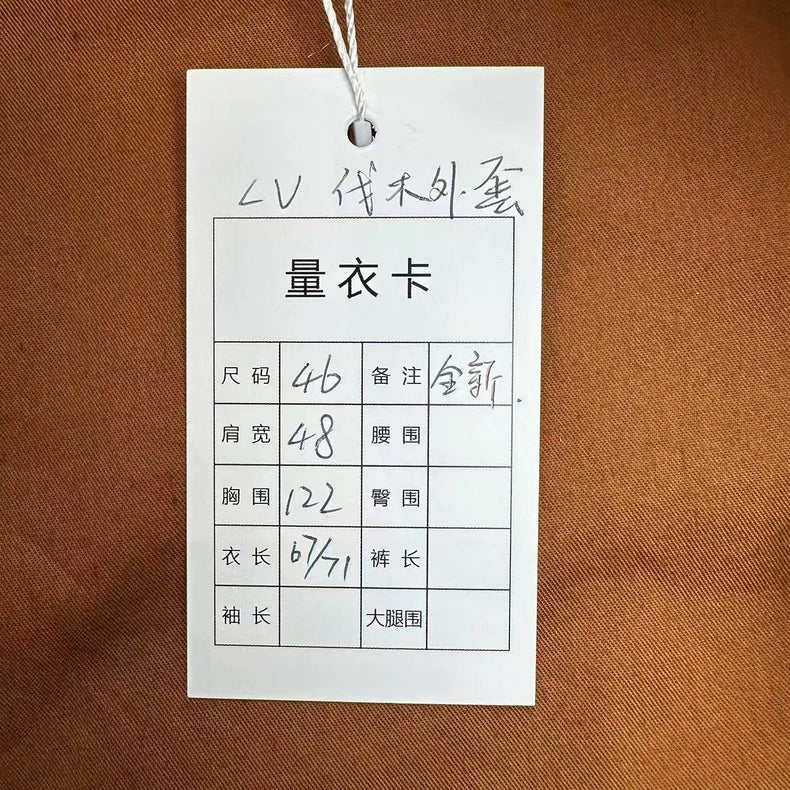 LV 伐木外套
量衣卡
尺码 46 备注 全新.
肩宽 48 腰围
胸围 122 臀围
衣长 67/71 裤长
袖长 大腿围